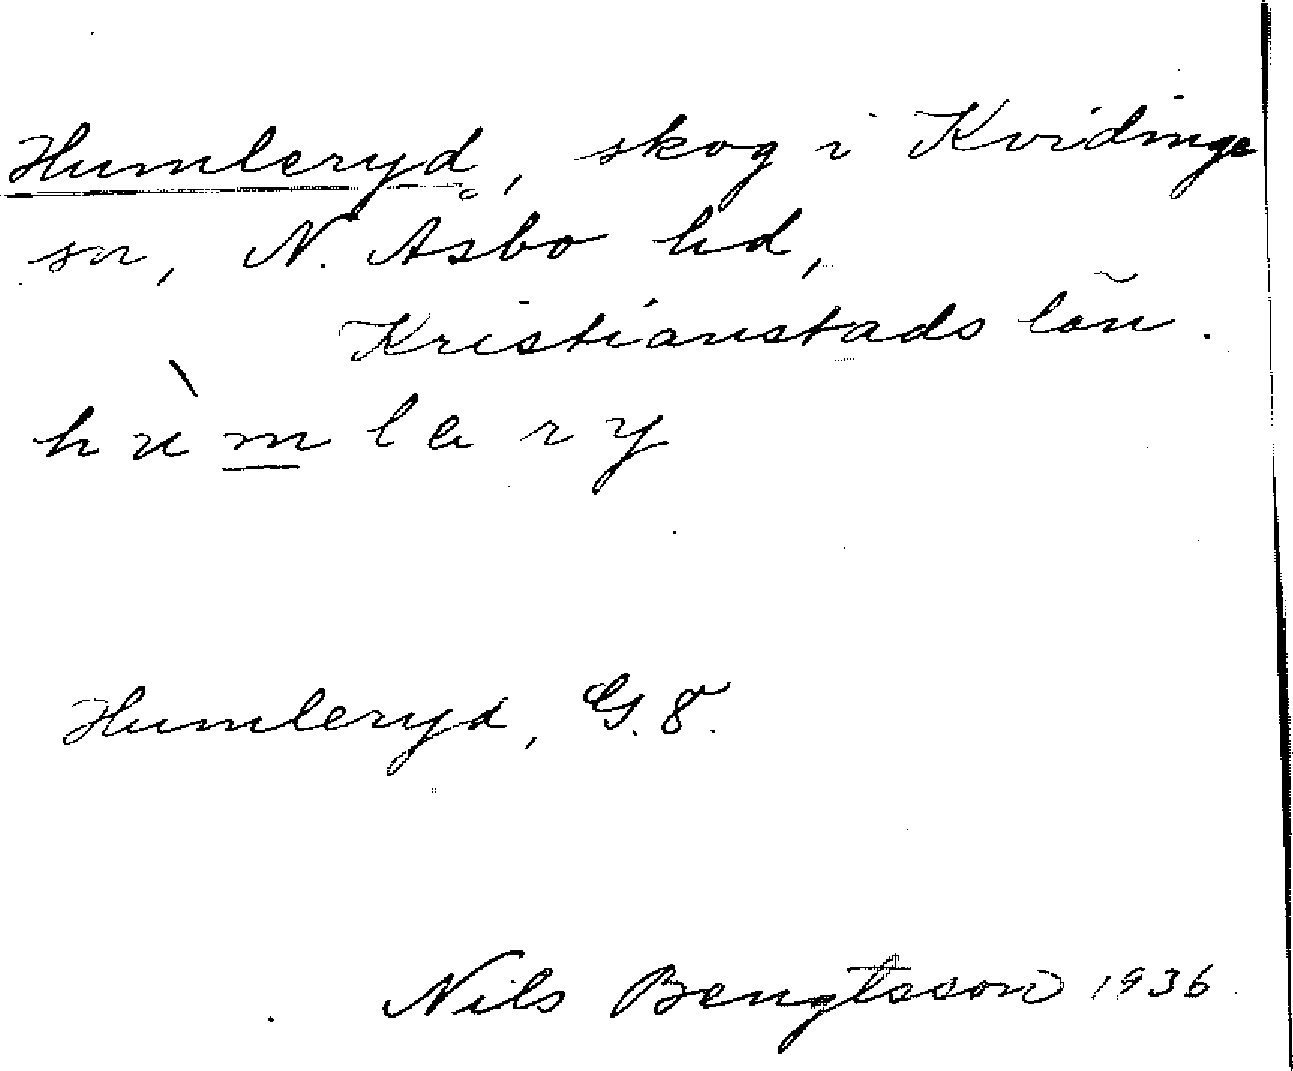 Humleryd, skog i Kvidinge
sn, N. Åsbo hd,
Kristianstads län.
hùmlary
Humleryd, G.8.
Nils Bengtsson 1936